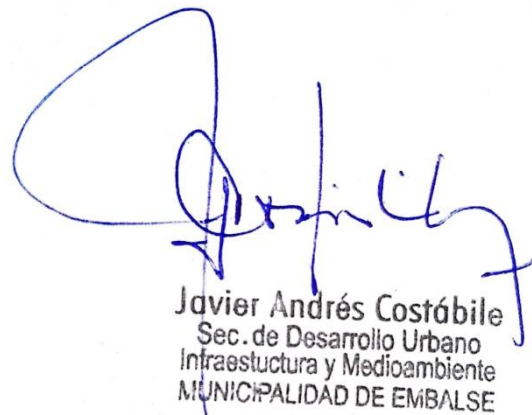 Javier Andrés Costábile
Sec. de Desarrollo Urbano
Infraestuctura y Medioambiente
MUNICIPALIDAD DE EMBALSE